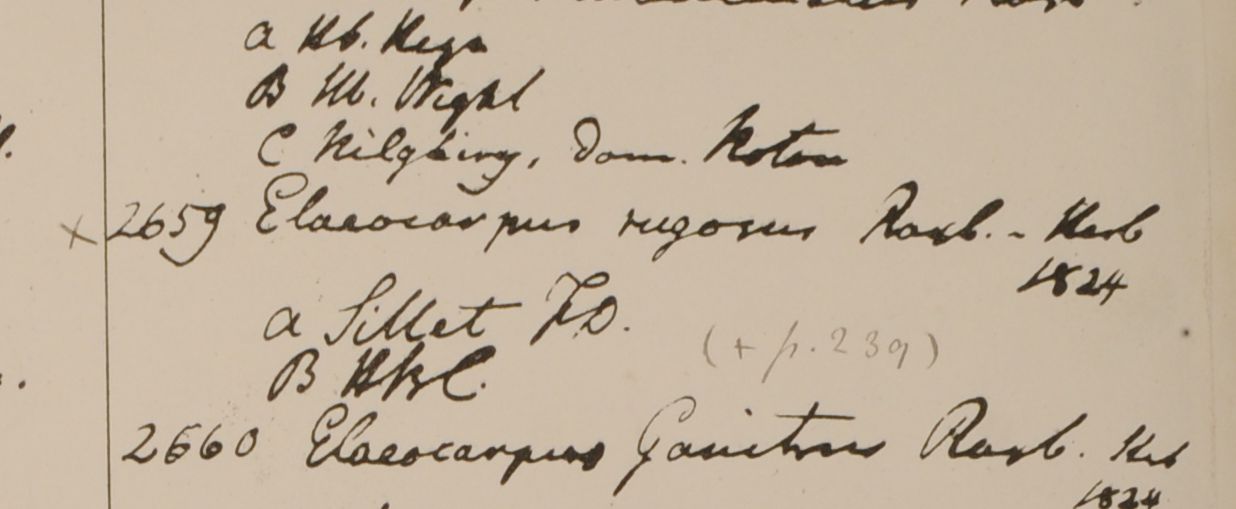 a Hb. Heyn
B Hb. Wight
C Nilghiry, Dom. Noton
x 2659 Elaeocarpus rugosus Roxb. - Herb
1824
a Sillet FD.
B HBC.
(+ p. 239)
2660 Elaeocarpus Ganitrus Roxb. Herb
1824